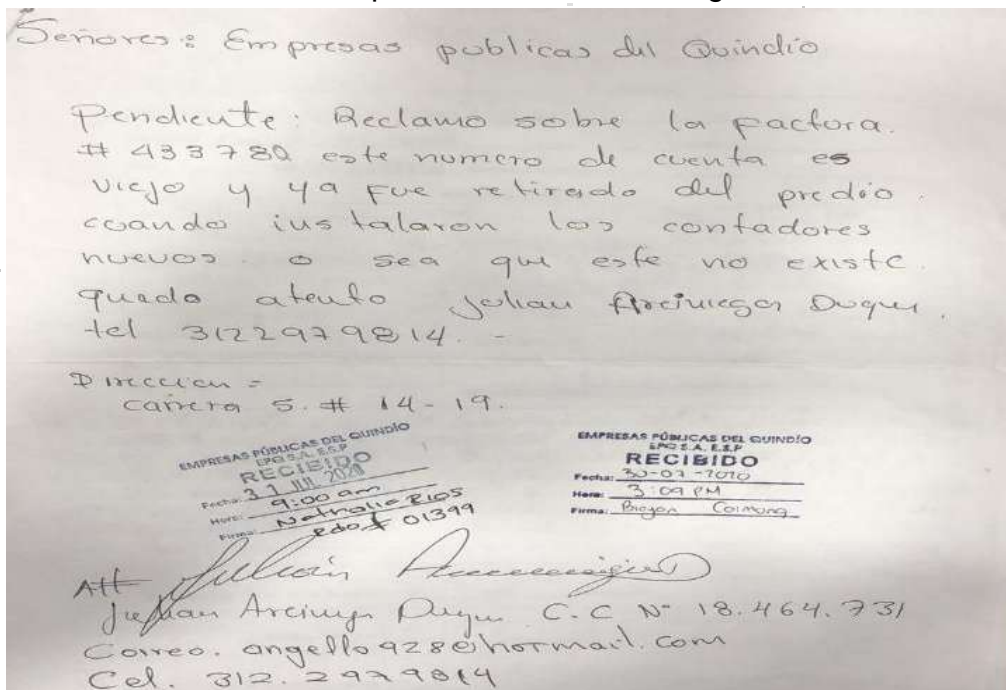 Señores: Empresas publicas del Quindio
Pendiente: Reclamo sobre la factura.
# 433780 este numero de cuenta es
viejo y ya fue retirado del predio.
cuando instalaron los contadores
nuevos. o sea que este no existe.
quedo atento Julian Arciniegas Duque.
tel 3122979814. -
Direccion =
carrera 5. # 14-19.
EMPRESAS PÚBLICAS DEL QUINDÍO
EPQ S.A. E.S.P
RECIBIDO
Fecha: 31 JUL 2020
Hora: 9:00 am
Firma: Nathalie Rios
Rdo # 01399
EMPRESAS PÚBLICAS DEL QUINDÍO
EPQ S.A. E.S.P
RECIBIDO
Fecha: 30-07-2020
Hora: 3:09 PM
Firma: Brayan
Att Julián
Julian Arciniegas Duque C.C Nº 18.464.731
Correo. angello928@hotmail.com
Cel. 312.2979814